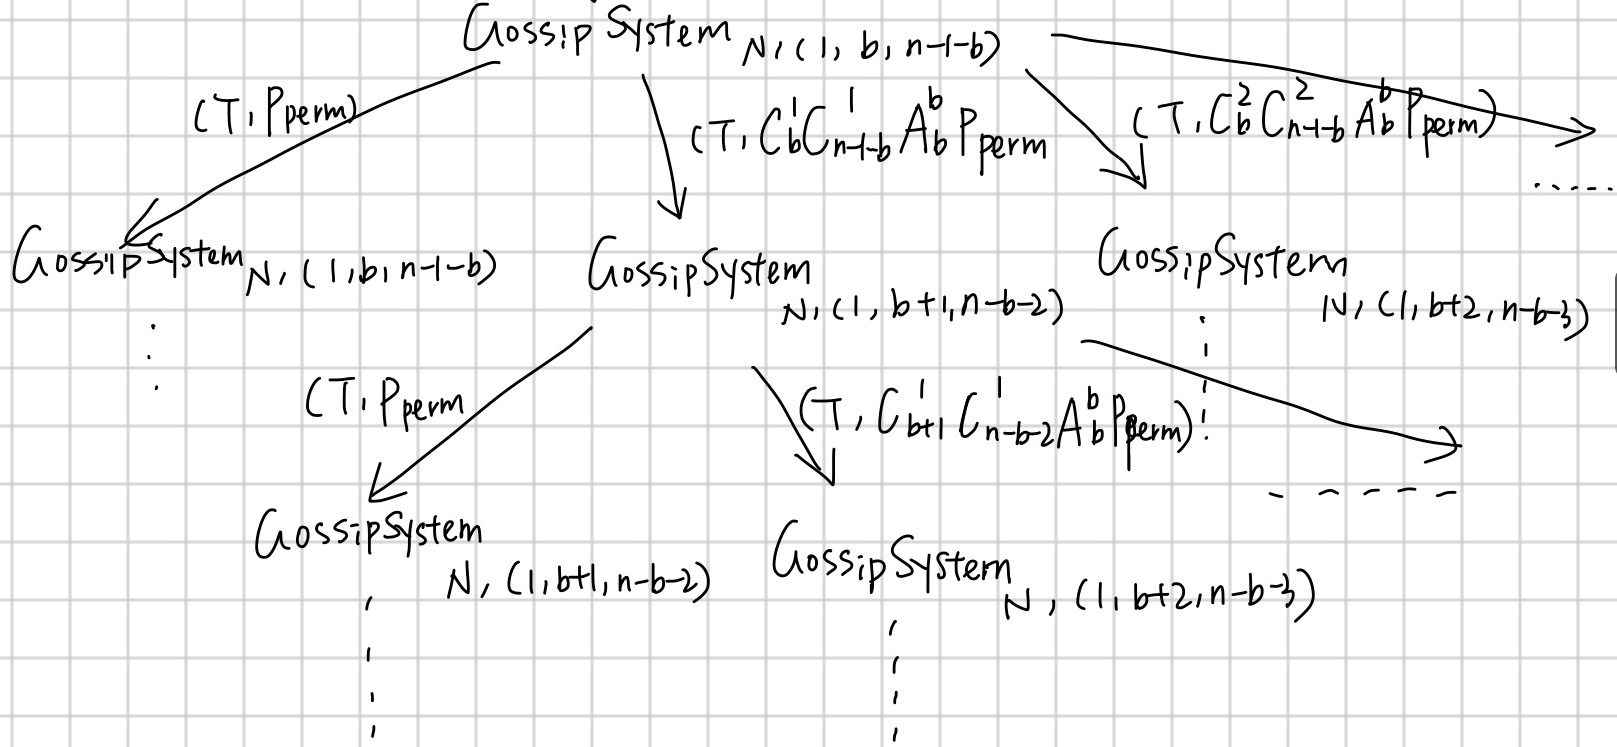 GossipSystem N, (1, b, n-1-b)
(T, Pperm)
(T, C_b^1 C_{n-1-b}^1 A_b^b Pperm
(T, C_b^2 C_{n-1-b}^2 A_b^b Pperm)
GossipSystem N, (1, b, n-1-b)
GossipSystem N, (1, b+1, n-b-2)
GossipSystem N, (1, b+2, n-b-3)
(T, Pperm
(T, C_{b+1}^1 C_{n-b-2}^1 A_b^b Pperm)
GossipSystem N, (1, b+1, n-b-2)
GossipSystem N, (1, b+2, n-b-3)